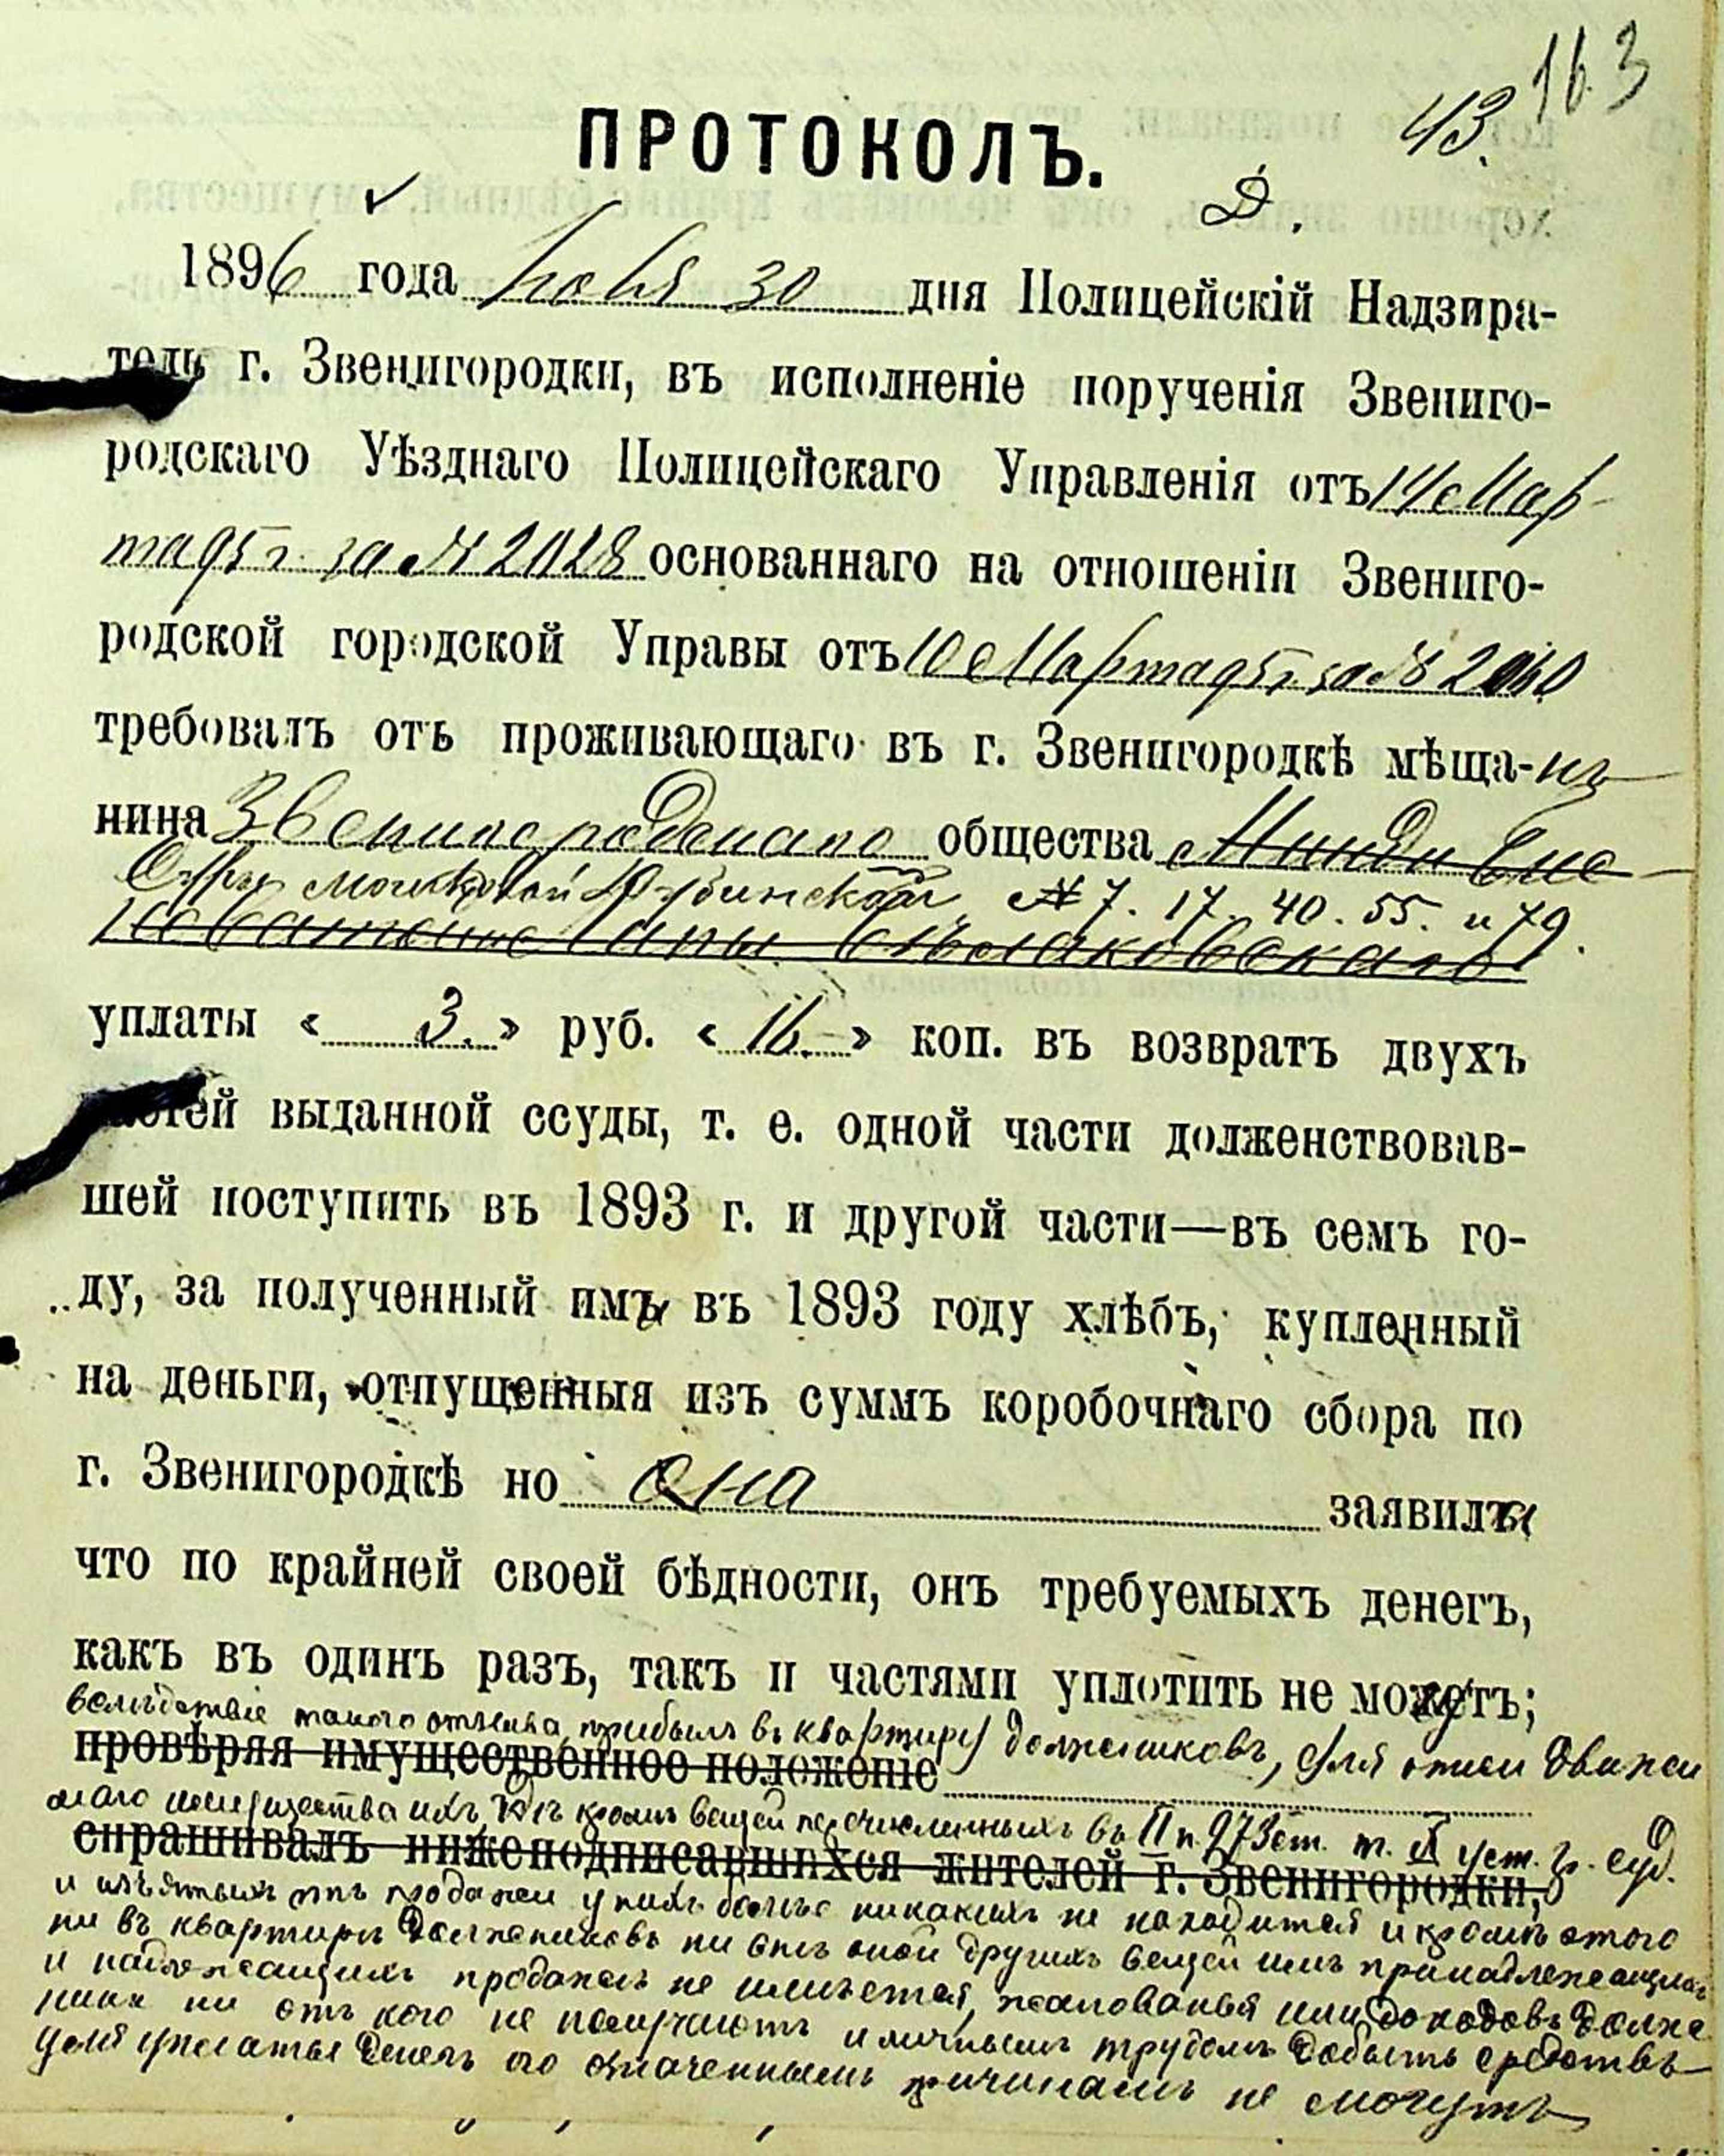 163
43.
ПРОТОКОЛЪ.
Д.
1896 года Ноября 30 дня Полицейскій Надзира-
тель г. Звенигородки, въ исполненіе порученія Звениго-
родскаго Уѣзднаго Полицейскаго Управленія отъ 14 Мар-
та 95 г. за № 2028 основаннаго на отношеніи Звениго-
родской городской Управы отъ 10 Марта 95 г. за №
требовалъ отъ проживающаго въ г. Звенигородкѣ мѣща-нъ
нина Звенигородскаго общества
№ 7. 17. 40. 55. и 79.
уплаты « 3. » руб. « 16. » коп. въ возвратъ двухъ
частей выданной ссуды, т. е. одной части долженствовав-
шей поступить въ 1893 г. и другой части—въ семъ го-
ду, за полученный имъ въ 1893 году хлѣбъ, купленный
на деньги, отпущенныя изъ суммъ коробочнаго сбора по
г. Звенигородкѣ но она заявила
что по крайней своей бѣдности, онъ требуемыхъ денегъ,
какъ въ одинъ разъ, такъ и частями уплотить не можетъ;
вслѣдствіе такого отзыва, прибылъ въ квартиру должниковъ, для описи движи
провѣряя имущественное положеніе
маго имущества ихъ, но кромѣ вещей перечисленныхъ въ II п. 973 ст. т. уст. гр. суд.
спрашивалъ нижеподписавшихся жителей г. Звенигородки,
и изъятыхъ отъ продажи у нихъ больше никакихъ не находится и кромѣ этого
ни въ квартирѣ должниковъ ни внѣ оной другихъ вещей имъ принадлежащихъ
и подлежащихъ продажѣ не имѣется, жалованья или доходовъ долж
ники ни отъ кого не получаютъ и личнымъ трудомъ добыть средствъ
для уплаты денегъ по означеннымъ причинамъ не могутъ